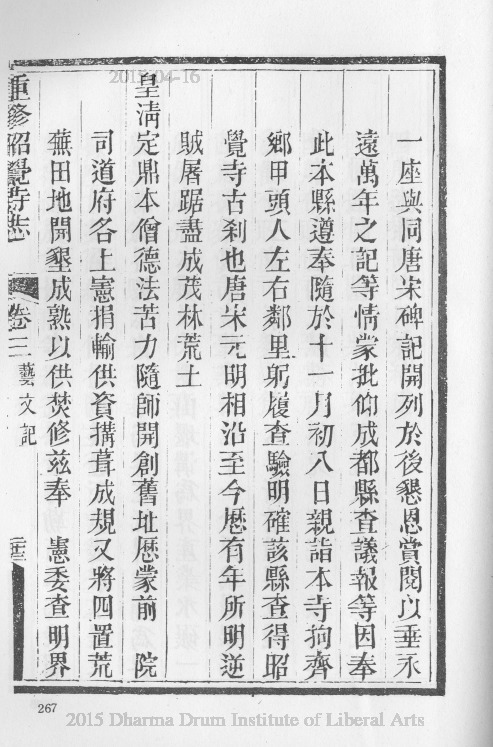 一座與同唐宋碑記開列於後懇恩賞閱以垂永
遠萬年之記等情蒙批仰成都縣查議報等因奉
此本縣遵奉隨於十一月初八日親詣本寺拘齊
鄉甲頭人左右鄰里躬履查驗明確該縣查得昭
覺寺古刹也唐宋元明相沿至今歷有年所明逆
賊屠踞盡成茂林荒土
皇清定鼎本僧德法苦力隨師開創舊址歷蒙前 院
司道府各上憲捐輸供資搆葺成規又將四置荒
蕪田地開墾成熟以供焚修茲奉 憲委查明界
重修昭覺寺志 卷三 藝文記
267
2015-04-16
2015 Dharma Drum Institute of Liberal Arts